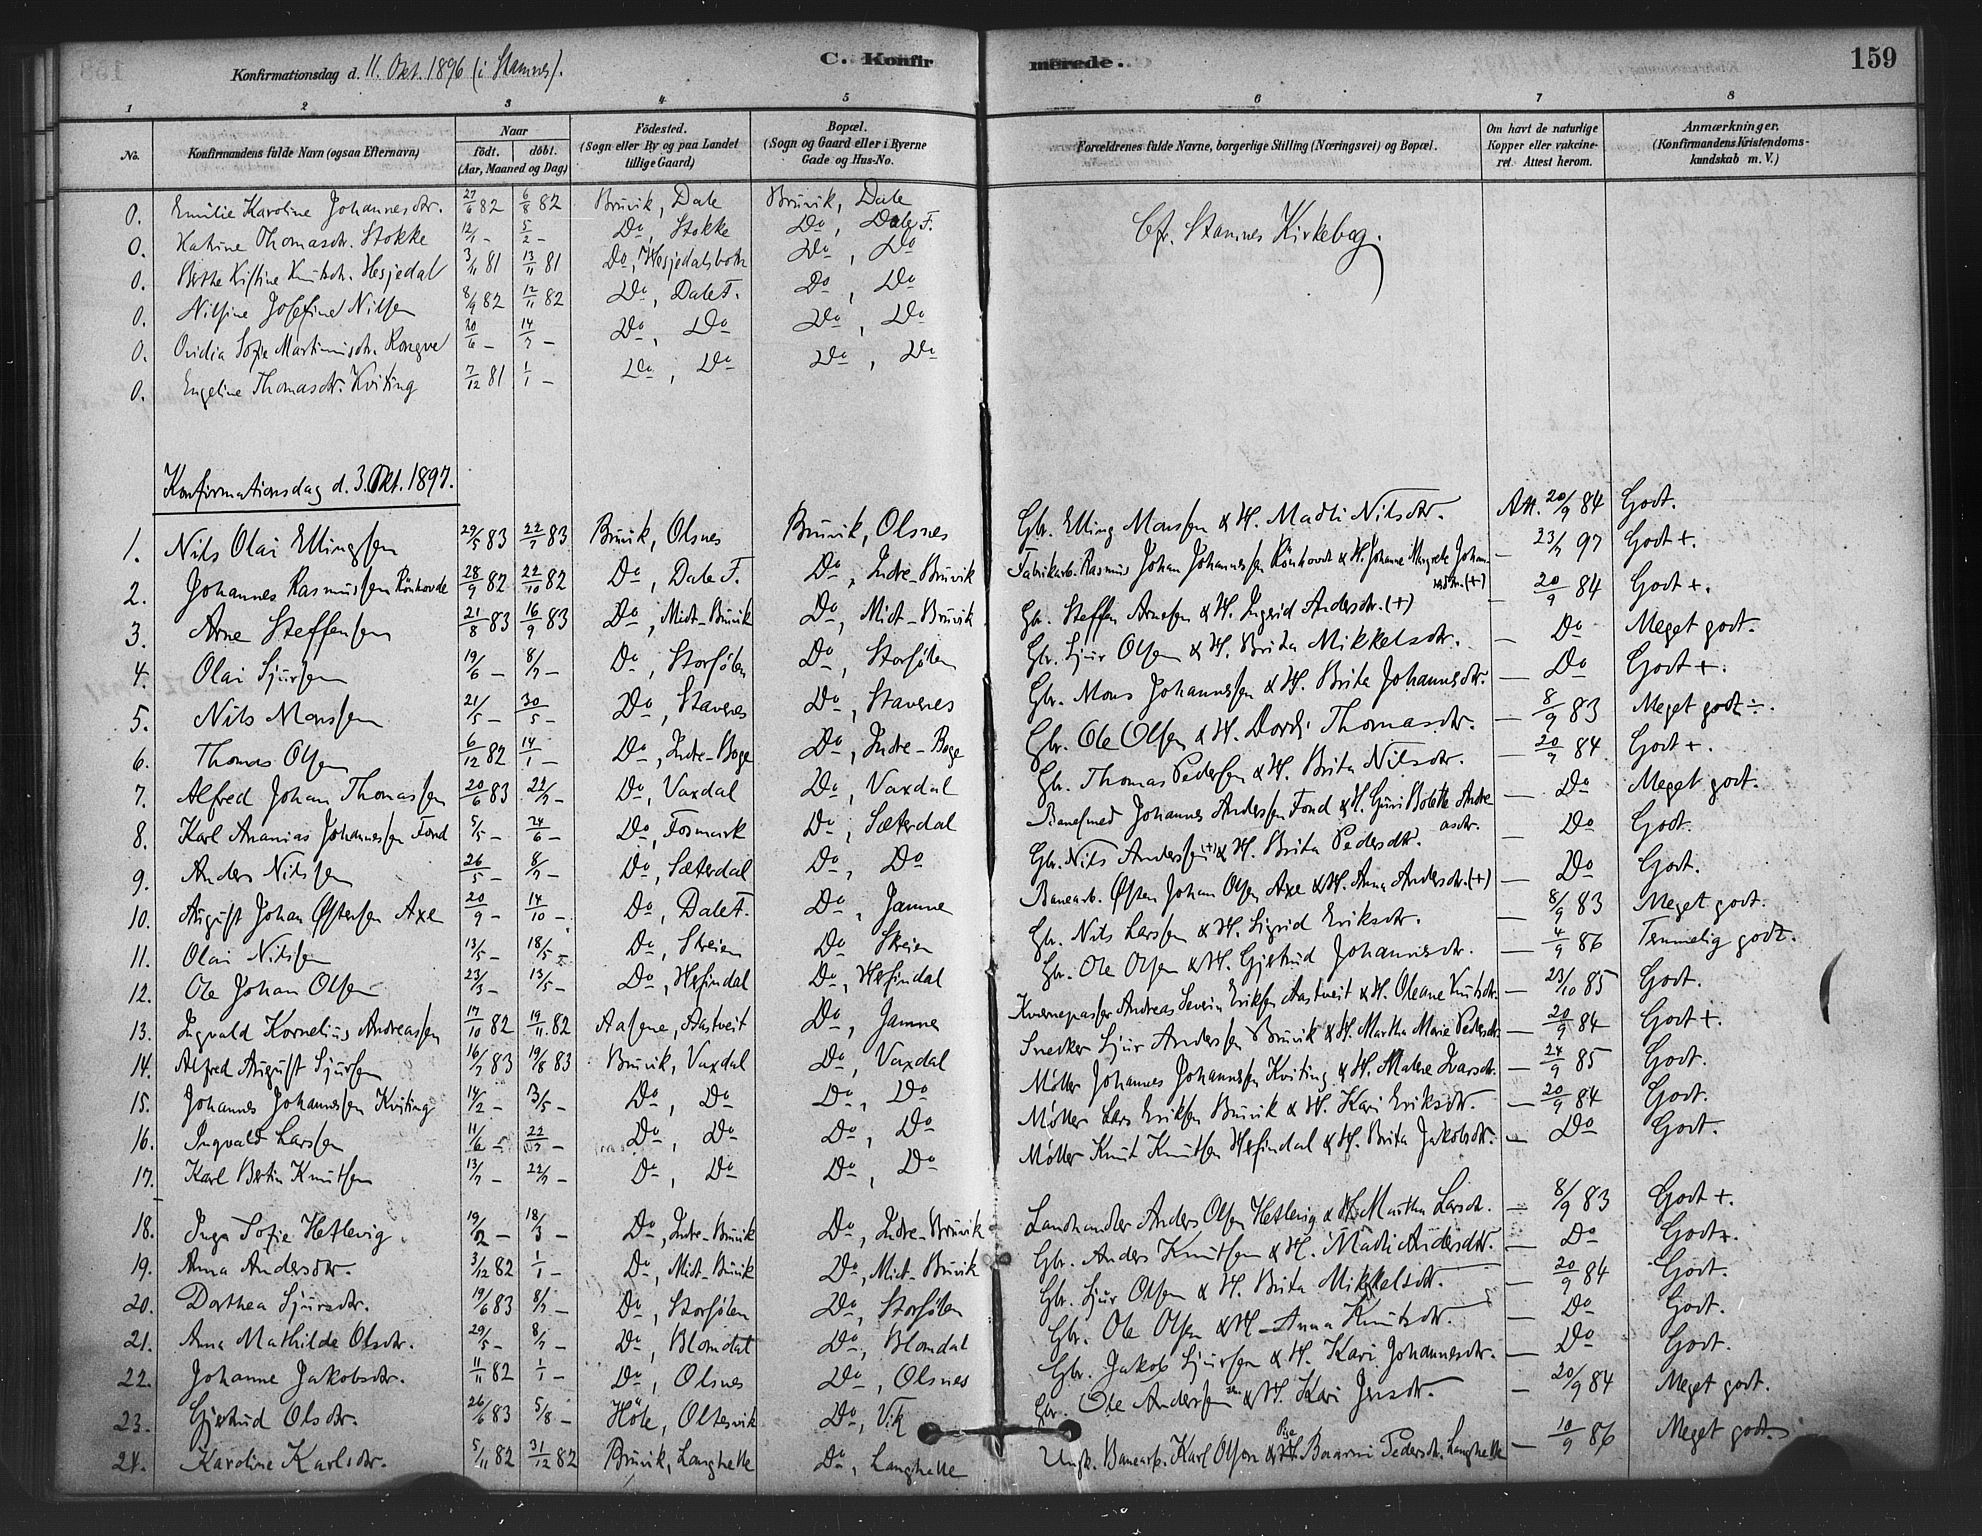 Konfirmationsdag d. 11. Okt. 1896 (i Stamnes).
C. Konfirmerede.
159
1 2 3 4 5 6 7 8
No.
Konfirmandens fulde Navn (ogsaa Efternavn)
Naar
födt. döbt.
(Aar, Maaned og Dag)
Födested.
(Sogn eller By og paa Landet
tillige Gaard)
Bopæl.
(Sogn og Gaard eller i Byerne
Gade og Hus-No.
Forældrenes fulde Navne, borgerlige Stilling (Næringsvei) og Bopæl.
Om havt de naturlige
Kopper eller vakcine-
ret. Attest herom.
Anmærkninger.
(Konfirmandens Kristendoms-
kundskab m. V.)
0. Emilie Karoline Johannesdtr. 27/6 82 6/8 82 Bruvik, Dale Bruvik, Dale
Cfr. Stamnes Kirkebog.
0. Katrine Thomasdtr. Stokke 12/1 – 5/2 – Do, Stokke Do, Dale F.
0. Berthe Kristine Knutsdtr. Hesjedal 3/11 81 13/11 81 Do, Hesjedalsbotn Do, Do
0. Nilsine Josefine Nilsen 8/9 82 12/11 82 Do, Dale F. Do, Do
0. Ovidia Sofie Martinusdtr. Rongve 20/6 – 14/7 – Do, Do Do, Do
0. Engeline Thomasdtr. Kviting 7/12 81 1/1 – Do, Do Do, Do
Konfirmationsdag d. 3. Okt. 1897.
1. Nils Olai Ellingsen 29/5 83 22/7 83 Bruvik, Olsnes Bruvik, Olsnes Gbr. Elling Monsen & H. Madli Nilsdtr. Att. 20/9 84 Godt.
2. Johannes Rasmussen Rönhovde 28/9 82 22/10 82 Do, Dale F. Do, Indre-Bruvik Fabrikarb. Rasmus Johan Johannessen Rönhovde & H. Johanne Margrete Johan-
nesdtr. (+) – 23/7 97 Godt +.
3. Arne Steffensen 21/8 83 16/9 83 Do, Midt-Bruvik Do, Midt-Bruvik Gbr. Steffen Arnesen & H. Ingerid Andersdtr. (+) – 20/9 84 Godt +.
4. Olai Sjursen 19/6 – 8/7 – Do, Storfölen Do, Storfölen Gbr. Sjur Olsen & H. Brita Mikkelsdtr. – Do Meget godt.
5. Nils Monsen 21/5 – 30/5 – Do, Stavenes Do, Stavenes Gbr. Mons Johannessen & H. Brita Johannesdtr. – Do Godt +.
6. Thomas Olsen 6/12 82 14/1 – Do, Indre-Boge Do, Indre-Boge Gbr. Ole Olsen & H. Dordi Thomasdtr. – 8/9 83 Meget godt ÷.
7. Alfred Johan Thomassen 20/6 83 22/7 – Do, Vaxdal Do, Vaxdal Gbr. Thomas Pedersen & H. Brita Nilsdtr. – 20/9 84 Godt +.
8. Karl Ananias Johannessen Fond 5/5 – 24/6 – Do, Fosmark Do, Sæterdal Banefmed Johannes Andersen Fond & H. Guri Bolette Andre
asdtr. – Do Meget godt.
9. Anders Nilssen 26/5 – 8/7 – Do, Sæterdal Do, Do Gbr. Nils Anderssen (+) & H. Brita Pedersdtr. – Do Godt.
10. August Johan Østensen Axe 20/9 – 14/10 – Do, Dale F. Do, Jamne Banearb. Østen Johan Olsen Axe & H. Anna Andersdtr. (+) – Do Godt.
11. Olai Nilssen 13/5 – 18/5 – Do, Skreien Do, Skreien Gbr. Nils Larssen & H. Sigrid Eriksdtr. – 8/9 83 Meget godt.
12. Ole Johan Olsen 23/3 – 13/5 – Do, Herfindal Do, Herfindal Gbr. Ole Olsen & H. Gjertrud Johannesdtr. – 4/9 86 Temmelig godt.
13. Ingvald Kornelius Andreassen 17/10 82 19/11 82 Aasene, Aastveit Do, Jamne Kvernepasser Andreas Severin Eriksen Aastveit & H. Oleane Knutsdtr. – 23/10 85 Godt.
14. Alfred August Sjursen 16/7 83 19/8 83 Bruvik, Vaxdal Do, Vaxdal Snedker Sjur Anderssen Bruvik & H. Martha Marie Pedersdtr. – 20/9 84 Godt +.
15. Johannes Johannessen Kviting 14/2 – 13/5 – Do, Do Do, Do Møller Johannes Johannessen Kviting & H. Malene Ivarsdtr. – 24/9 85 Godt.
16. Ingvald Larssen 11/6 – 22/7 – Do, Do Do, Do Møller Lars Eriksen Bruvik & H. Kari Eriksdtr. – 20/9 84 Godt.
17. Karl Bertin Knutsen 13/7 – 22/7 – Do, Do Do, Do Møller Knut Knutsen Herfindal & H. Brita Jakobsdtr. – Do Godt.
18. Inga Sofie Hetlevig 19/2 – 18/3 – Do, Indre-Bruvik Do, Indre-Bruvik Landhandler Anders Olsen Hetlevig & H. Martha Larsdt. – 8/9 83 Godt +.
19. Anna Andersdtr. 3/12 82 1/1 – Do, Midt-Bruvik Do, Midt-Bruvik Gbr. Anders Knutsen & H. Madli Andersdtr. – Do Godt +.
20. Dorthea Sjursdtr. 19/6 83 8/7 – Do, Storfölen Do, Storfölen Gbr. Sjur Olsen & H. Brita Mikkelsdtr. – 20/9 84 Godt.
21. Anna Mathilde Olsdtr. 29/5 – 8/7 – Do, Blomdal Do, Blomdal Gbr. Ole Olsen & H. Anna Knutsdtr. – Do Godt.
22. Johanne Jakobsdtr. 11/11 82 1/1 – Do, Olsnes Do, Olsnes Gbr. Jakob Sjursen & H. Kari Johannesdtr. – Do Godt.
23. Gjertrud Olsdtr. 26/6 83 5/8 – Höle, Oltesvik Do, Vik Gbr. Ole Andersen & H. Kari Jensdtr. – 20/9 84 Meget godt.
24. Karoline Karlsdtr. 5/11 82 31/12 82 Bruvik, Langhelle Do, Langhelle Ungk. Banearb. Karl Olsen & Pige Pedersdtr. Langhelle – 10/9 86 Meget godt.